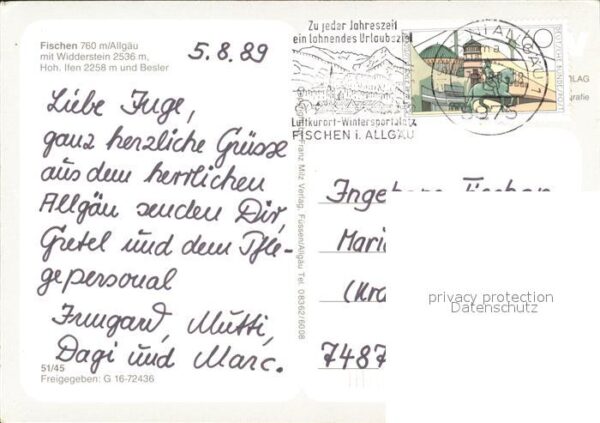 Fischen 760 m/Allgäu
mit Widderstein 2536 m,
Hoh. Ifen 2258 m und Besler
5.8.89
Liebe Inge,
ganz herzliche Grüsse
aus dem herrlichen
Allgäu senden Dir,
Gretel und dem Pfle-
gepersonal
Irmgard, Mutti,
Dagi und Marc.
51/45
Freigegeben: G 16-72436
Franz Milz Verlag, Füssen/Allgäu Tel. 08362/6008
Zu jeder Jahreszeit
ein lohnendes Urlaubsziel
Luftkurort-Wintersportplatz
FISCHEN i. ALLGÄU
8975
LAG
grafie
Ingeborg Fischer
Maria
7487
privacy protection
Datenschutz